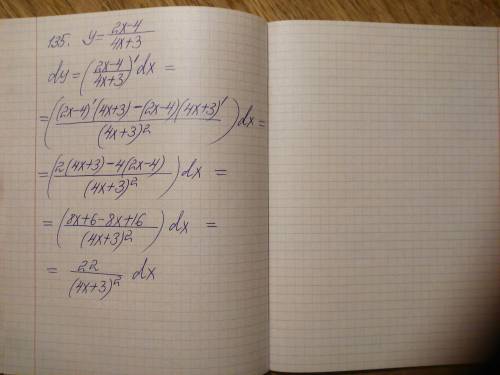 135. y = (2x-4)/(4x+3)
dy = ((2x-4)/(4x+3))' dx =
= (((2x-4)'(4x+3) - (2x-4)(4x+3)')/(4x+3)²) dx =
= ((2(4x+3) - 4(2x-4))/(4x+3)²) dx =
= ((8x+6-8x+16)/(4x+3)²) dx =
= 22/(4x+3)² dx